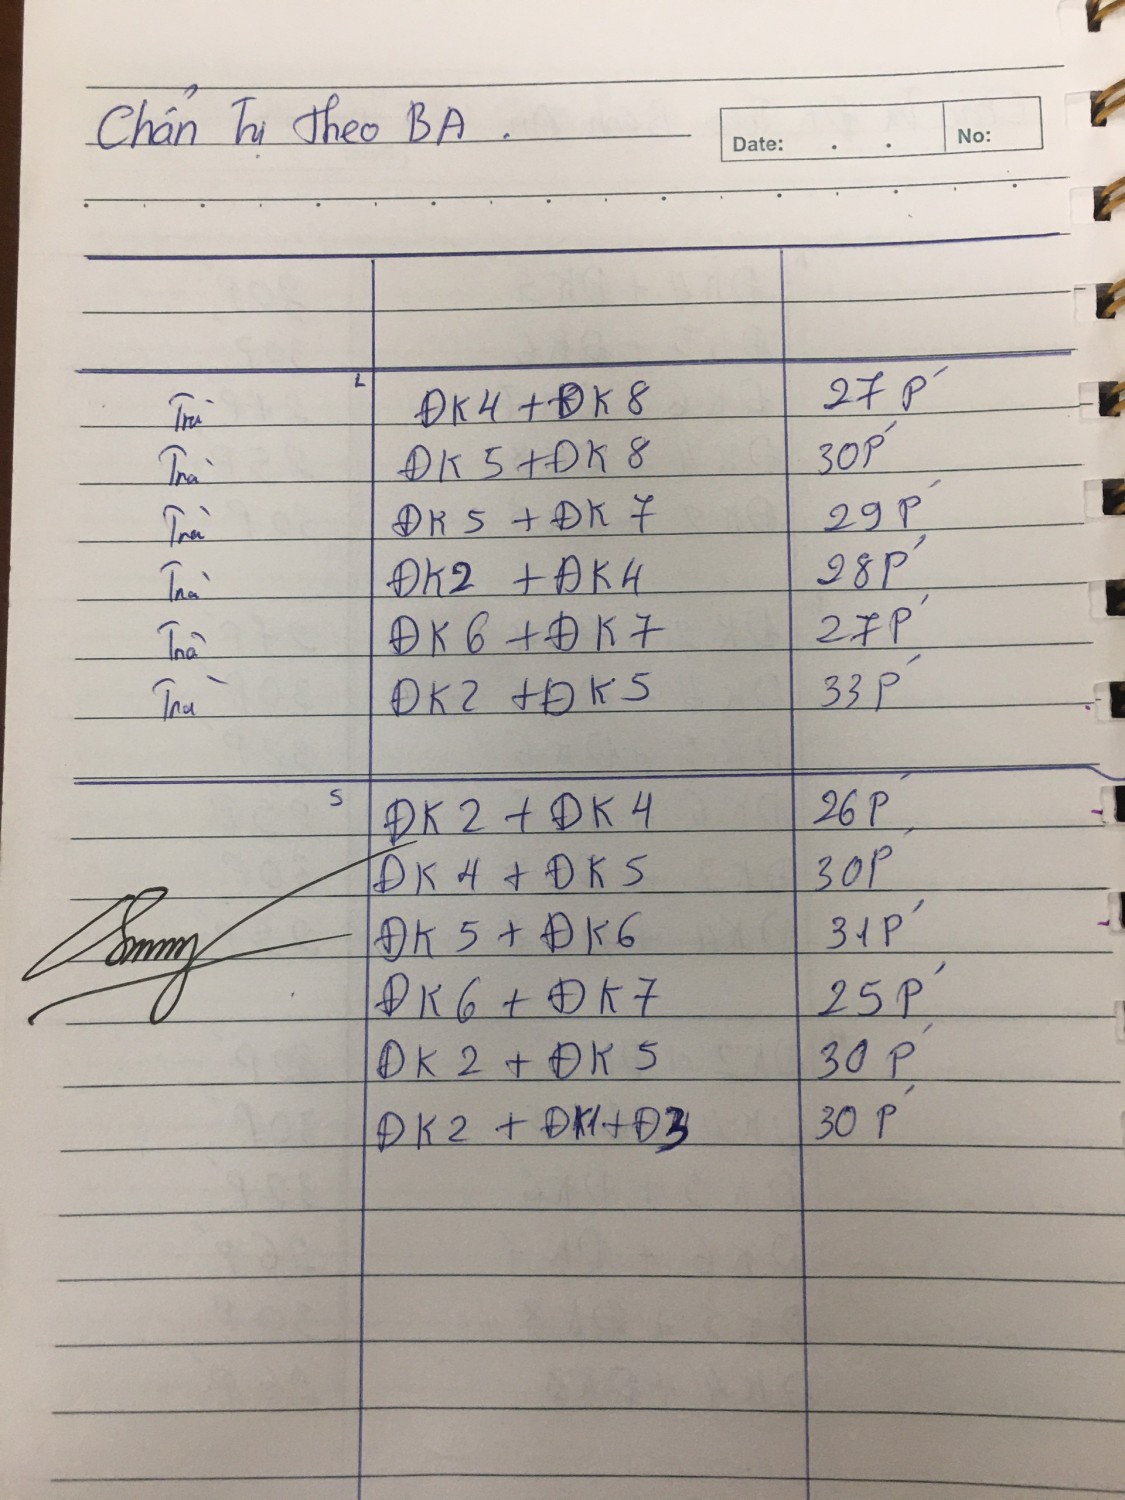 Chẩn Trị Theo BA.
Date: . . No:
L
Trà ĐK4 + ĐK8 27 P'
Trà ĐK5 + ĐK8 30P'
Trà ĐK5 + ĐK7 29 P'
Trà ĐK2 + ĐK4 28P'
Trà ĐK6 + ĐK7 27P'
Trà ĐK2 + ĐK5 33P'
S ĐK2 + ĐK4 26P'
ĐK4 + ĐK5 30P'
ĐK5 + ĐK6 31P'
ĐK6 + ĐK7 25P'
ĐK2 + ĐK5 30 P'
ĐK2 + ĐK1 + Đ3 30 P'